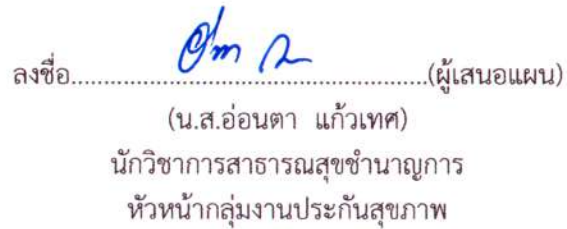 ลงชื่อ..................................................(ผู้เสนอแผน)
(น.ส.อ่อนตา แก้วเทศ)
นักวิชาการสาธารณสุขชำนาญการ
หัวหน้ากลุ่มงานประกันสุขภาพ